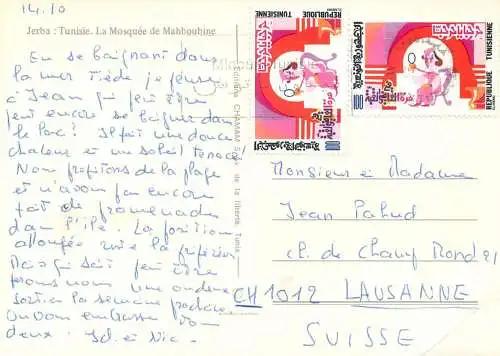 14.10
Jerba : Tunisie. La Mosquée de Mahboubine
En se baignant dans
la mer tiède je pense
à Jean qui peut être
peut encore se baigner dans
le lac ! Il fait une douce
chaleur et un soleil tenace !
Nous profitons de la plage
et n'avons pas encore
fait de promenades
dans l'île. La position
allongée sur la
Mais qui sait peut être
ferons nous une ou deux
sorties la semaine prochaine
On vous embrasse tous
deux.
REPUBLIQUE
TUNISIENNE
100
REPUBLIQUE TUNISIENNE
100
Monsieur et Madame
Jean Pahud
ch. de Champ Rond 21
CH 1012 LAUSANNE
SUISSE